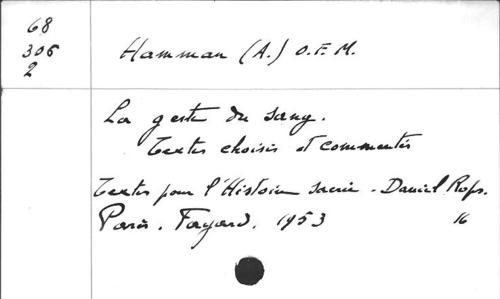 68
306
2
Hamman (A.) O.F.M.
La geste du sang.
Textes choisis et commentés
Textes pour l'Histoire sacrée. Daniel Rops.
Paris. Fayard. 1953 16